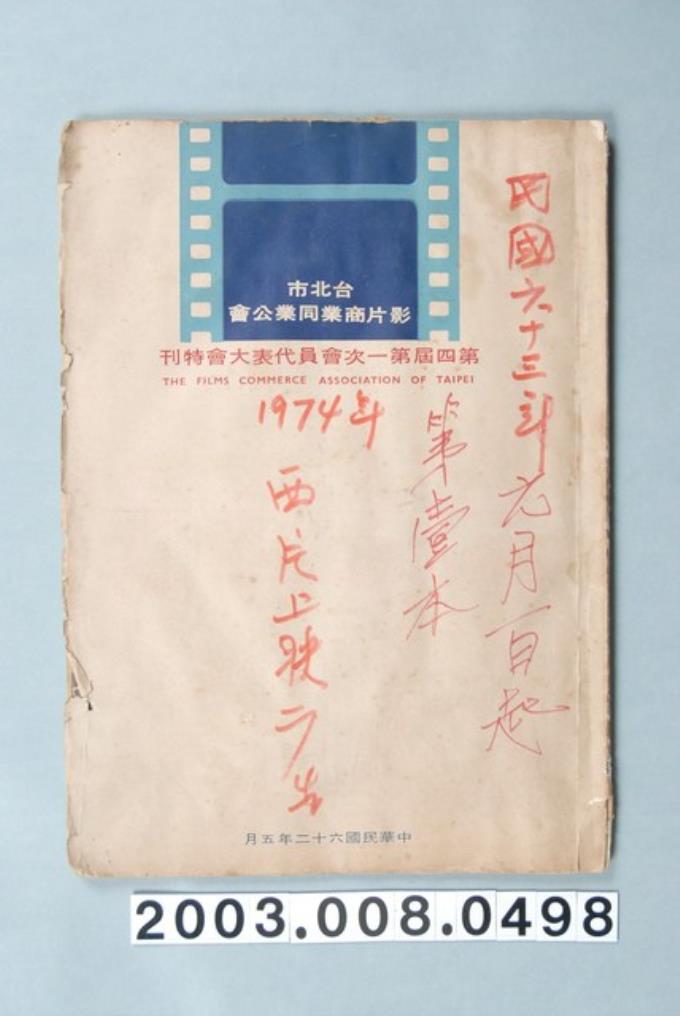 台北市
影片商業同業公會
第四屆第一次會員代表大會特刊
THE FILMS COMMERCE ASSOCIATION OF TAIPEI
民國六十三年元月一日起
第壹本
1974年
西片上映广告
中華民國六十二年五月
2003.008.0498